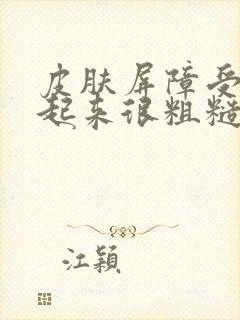 皮肤屏障受
起来很粗糙
江颖